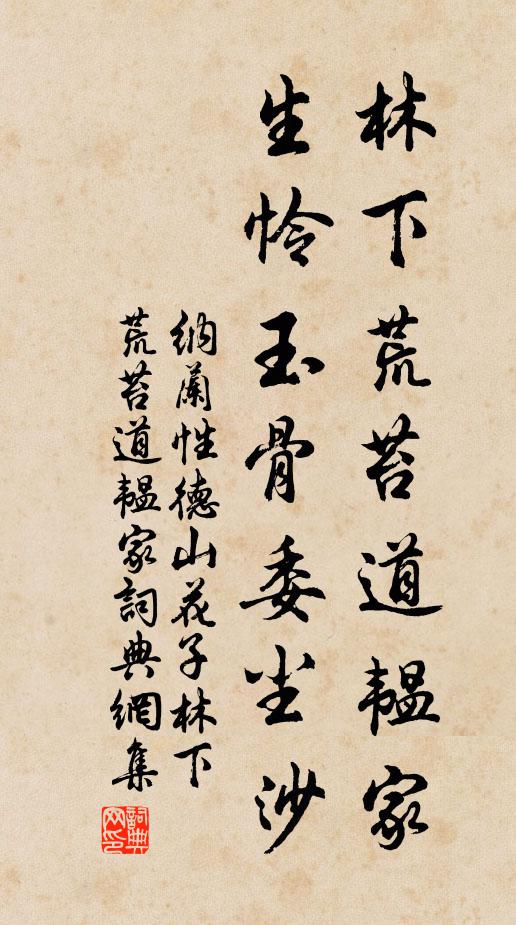 林下荒苔道韞家
生怜玉骨委尘沙
納蘭性德山花子林下
荒苔道韞家詞典網集
詞典网印